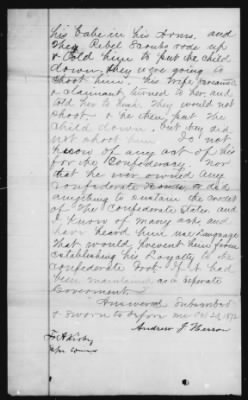 his babe in his Arms. and
They Rebel Scouts rode up
& told him to put the child
down, they were going to
shoot him. his wife
& claimant, turned to her, and
told her to They would not
shoot. & he then put the
child down. but they did
not shoot him. I do not
know of any act of his
for the Confederacy. Nor
that he ever owned any
Confederate did
anything to sustain the
of the Confederate States and
I know of many acts and
have heard him use language
that would prevent him from
establishing his Loyalty to the
Confederate Govt if it had
been maintained as a separate
Government
Answered Subscribed
& Sworn to before me Oct 1872
Andrew J